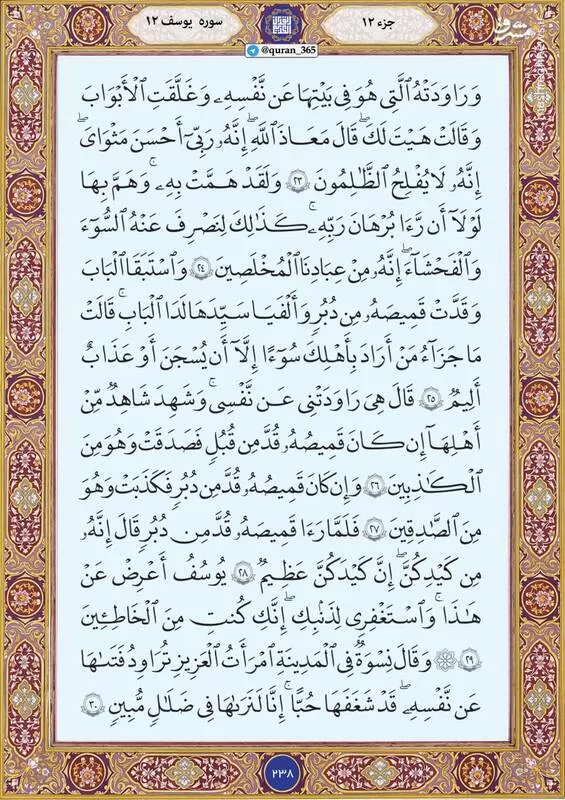 جزء ۱۲
سوره یوسف ۱۲
@quran_365
مشرق
وَرَٰوَدَتْهُ ٱلَّتِى هُوَ فِى بَيْتِهَا عَن نَّفْسِهِۦ وَغَلَّقَتِ ٱلْأَبْوَٰبَ
وَقَالَتْ هَيْتَ لَكَ ۚ قَالَ مَعَاذَ ٱللَّهِ ۖ إِنَّهُۥ رَبِّىٓ أَحْسَنَ مَثْوَاىَ ۖ
إِنَّهُۥ لَا يُفْلِحُ ٱلظَّٰلِمُونَ ۲۳ وَلَقَدْ هَمَّتْ بِهِۦ ۖ وَهَمَّ بِهَا
لَوْلَآ أَن رَّءَا بُرْهَٰنَ رَبِّهِۦ ۚ كَذَٰلِكَ لِنَصْرِفَ عَنْهُ ٱلسُّوٓءَ
وَٱلْفَحْشَآءَ ۚ إِنَّهُۥ مِنْ عِبَادِنَا ٱلْمُخْلَصِينَ ۲۴ وَٱسْتَبَقَا ٱلْبَابَ
وَقَدَّتْ قَمِيصَهُۥ مِن دُبُرٍ وَأَلْفَيَا سَيِّدَهَا لَدَا ٱلْبَابِ ۚ قَالَتْ
مَا جَزَآءُ مَنْ أَرَادَ بِأَهْلِكَ سُوٓءًا إِلَّآ أَن يُسْجَنَ أَوْ عَذَابٌ
أَلِيمٌ ۲۵ قَالَ هِىَ رَٰوَدَتْنِى عَن نَّفْسِى ۚ وَشَهِدَ شَاهِدٌ مِّنْ
أَهْلِهَآ إِن كَانَ قَمِيصُهُۥ قُدَّ مِن قُبُلٍ فَصَدَقَتْ وَهُوَ مِنَ
ٱلْكَٰذِبِينَ ۲۶ وَإِن كَانَ قَمِيصُهُۥ قُدَّ مِن دُبُرٍ فَكَذَبَتْ وَهُوَ
مِنَ ٱلصَّٰدِقِينَ ۲۷ فَلَمَّا رَءَا قَمِيصَهُۥ قُدَّ مِن دُبُرٍ قَالَ إِنَّهُۥ
مِن كَيْدِكُنَّ ۖ إِنَّ كَيْدَكُنَّ عَظِيمٌ ۲۸ يُوسُفُ أَعْرِضْ عَنْ
هَٰذَا ۚ وَٱسْتَغْفِرِى لِذَنۢبِكِ ۖ إِنَّكِ كُنتِ مِنَ ٱلْخَاطِـِٔينَ
۲۹ ۞ وَقَالَ نِسْوَةٌ فِى ٱلْمَدِينَةِ ٱمْرَأَتُ ٱلْعَزِيزِ تُرَٰوِدُ فَتَىٰهَا
عَن نَّفْسِهِۦ ۖ قَدْ شَغَفَهَا حُبًّا ۖ إِنَّا لَنَرَىٰهَا فِى ضَلَٰلٍ مُّبِينٍ ۳۰
۲۳۸